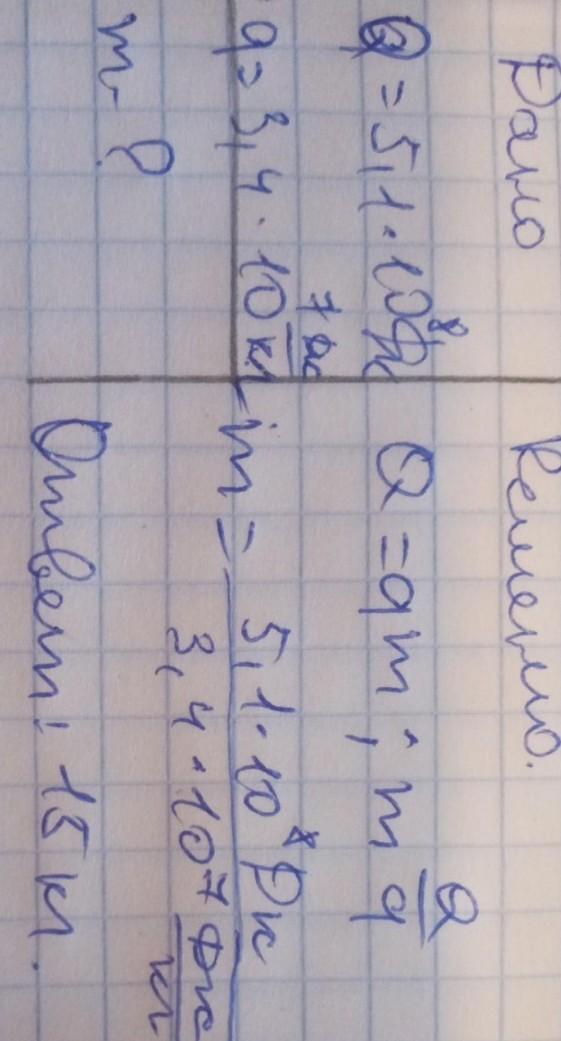 Дано
Q = 5,1 · 10⁸ Дж
q = 3,4 · 10⁷ Дж/кг
m - ?
Решение.
Q = qm ; m Q/q
m = 5,1 · 10⁸ Дж / 3,4 · 10⁷ Дж/кг
Ответ: 15 кг.